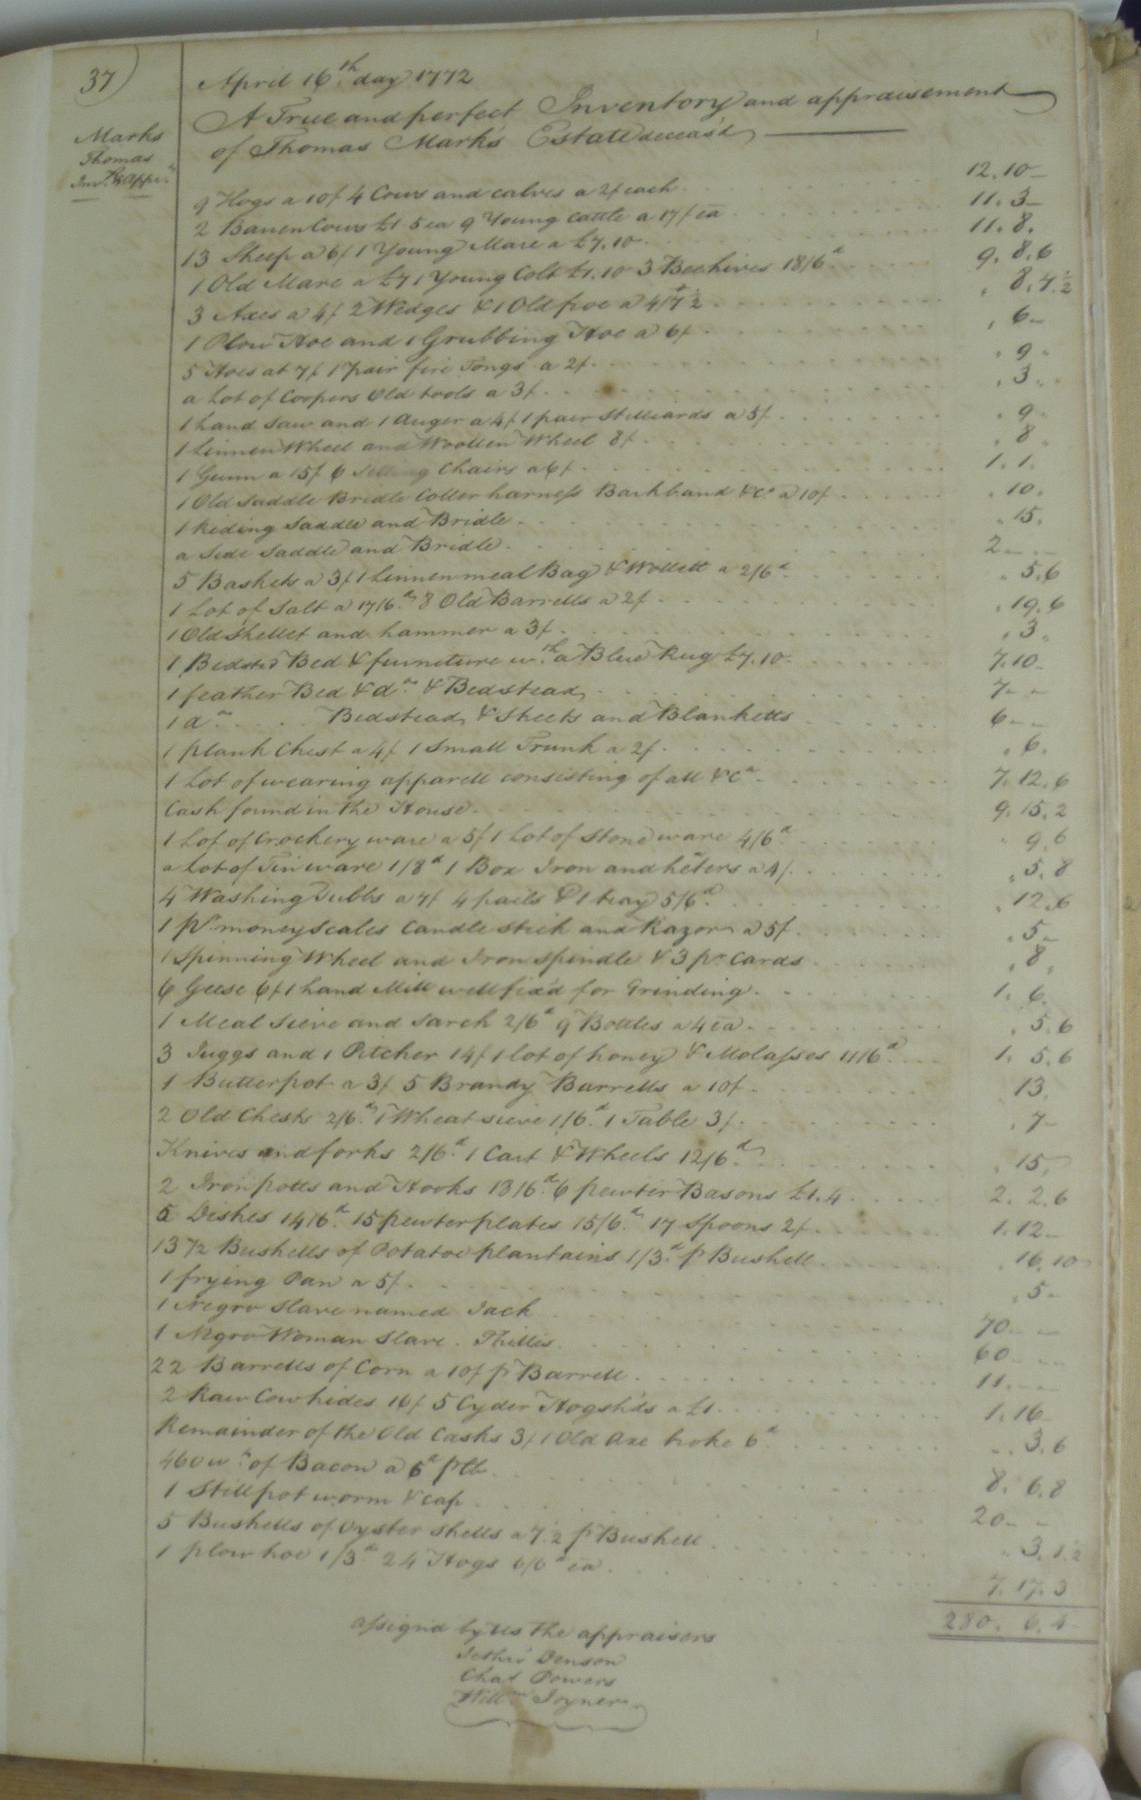 37
Marks
Thomas
Inv.t & Appr.mt
April 16th day 1772
A True and perfect Inventory and appraisement
of Thomas Marks Estate deceas'd
9 Hogs a 10/ 4 Cows and calves a 2£ each 12.10-
2 Barren Cows £1 5 ea 9 Young Cattle a 17/ ea 11.3-
13 Sheep a 6/ 1 Young Mare a £7.10 11.8.
1 Old Mare a £7 1 Young Colt £1.10 3 Beehives 18/6d 9.8.6
3 Axes a 4/ 2 Wedges & 1 Old froe a 4/7½ .8.7½
1 Plow Hoe and 1 Grubbing Hoe a 6/ .6-
5 Hoes at 7/ 1 pair fire Tongs a 2/ .9.
a Lot of Coopers Old tools a 3/ .3.
1 hand Saw and 1 Auger a 4/ 1 pair Stilliards a 5/ .9.
1 Linnen Wheel and Woollen Wheel 8/ .8.
1 Gunn a 15/ 6 Chairs a 6/ 1.1.
1 Old Saddle Bridle Coller harness Backband &Ca a 10/ .10.
1 Reding Saddle and Bridle .15.
a Side Saddle and Bridle 2--
5 Baskets a 3/ 1 Linnen meal Bag & Wollett a 2/6d .5.6
1 Lot of Salt a 17/6d 8 Old Barrells a 2/ .19.6
1 Old Skellet and hammer a 3/ .3.
1 Bedstd Bed & furneture wth a Blue Rug £7.10 7.10-
1 feather Bed & do & Bedstead 7--
1 do Bedstead & Sheets and Blanketts 6--
1 plank Chest a 4/ 1 Small Trunk a 2/ .6.
1 Lot of wearing apparell consisting of all &Ca 7.12.6
Cash found in the House 9.15.2
1 Lot of Crockery ware a 5/ 1 Lot of Stone ware 4/6d .9.6
a Lot of Tin ware 1/8d 1 Box Iron and heters a 4/ .5.8
4 Washing Tubbs a 7/ 4 pails & 1 tray 5/6d .12.6
1 pr money scales Candle stick and Razor a 5/ .5-
1 Spinning Wheel and Iron spindle & 3 pr Cards .8.
6 Geese 6/ 1 hand Mill well fixd for Grinding 1.6.
1 Meal Sieve and Sarch 2/6d 9 Bottles a 4 ea .5.6
3 Juggs and 1 Pitcher 14/ 1 lot of honey & Molasses 11/6d 1.5.6
1 Butter pot a 3/ 5 Brandy Barrells a 10/ 13.
2 Old Chests 2/6d 1 Wheat sieve 1/6d 1 Table 3/ .7-
Knives and forks 2/6d 1 Cart & Wheels 12/6d .15.
2 Iron potts and Hooks 18/6d 6 pewter Basons £1.4 2.2.6
5 Dishes 14/6d 15 pewter plates 15/6d 17 Spoons 2/ 1.12-
13½ Bushells of Potatoe plantains 1/3d pr Bushell .16.10
1 frying Pan a 5/ .5-
1 Negro Slave named Jack 70--
1 Negro Woman Slave. Phillis 60--
22 Barrells of Corn a 10/ pr Barrell 11--
2 Raw Cow hides 16/ 5 Cyder Hogshds a £1 1.16
Remainder of the Old Casks 3/ 1 Old Axe broke 6d .3.6
460 wt of Bacon a 6d pr lb 8.6.8
1 Still pot worm & cap 20--
5 Bushells of Oyster Shells a 7½ pr Bushell .3.1½
1 plow hoe 1/3d 24 Hogs 6/6d ea 7.17.3
280.6.4
assignd by us the appraisers
Jethro Denson
Chas Powers
Willm Joyner